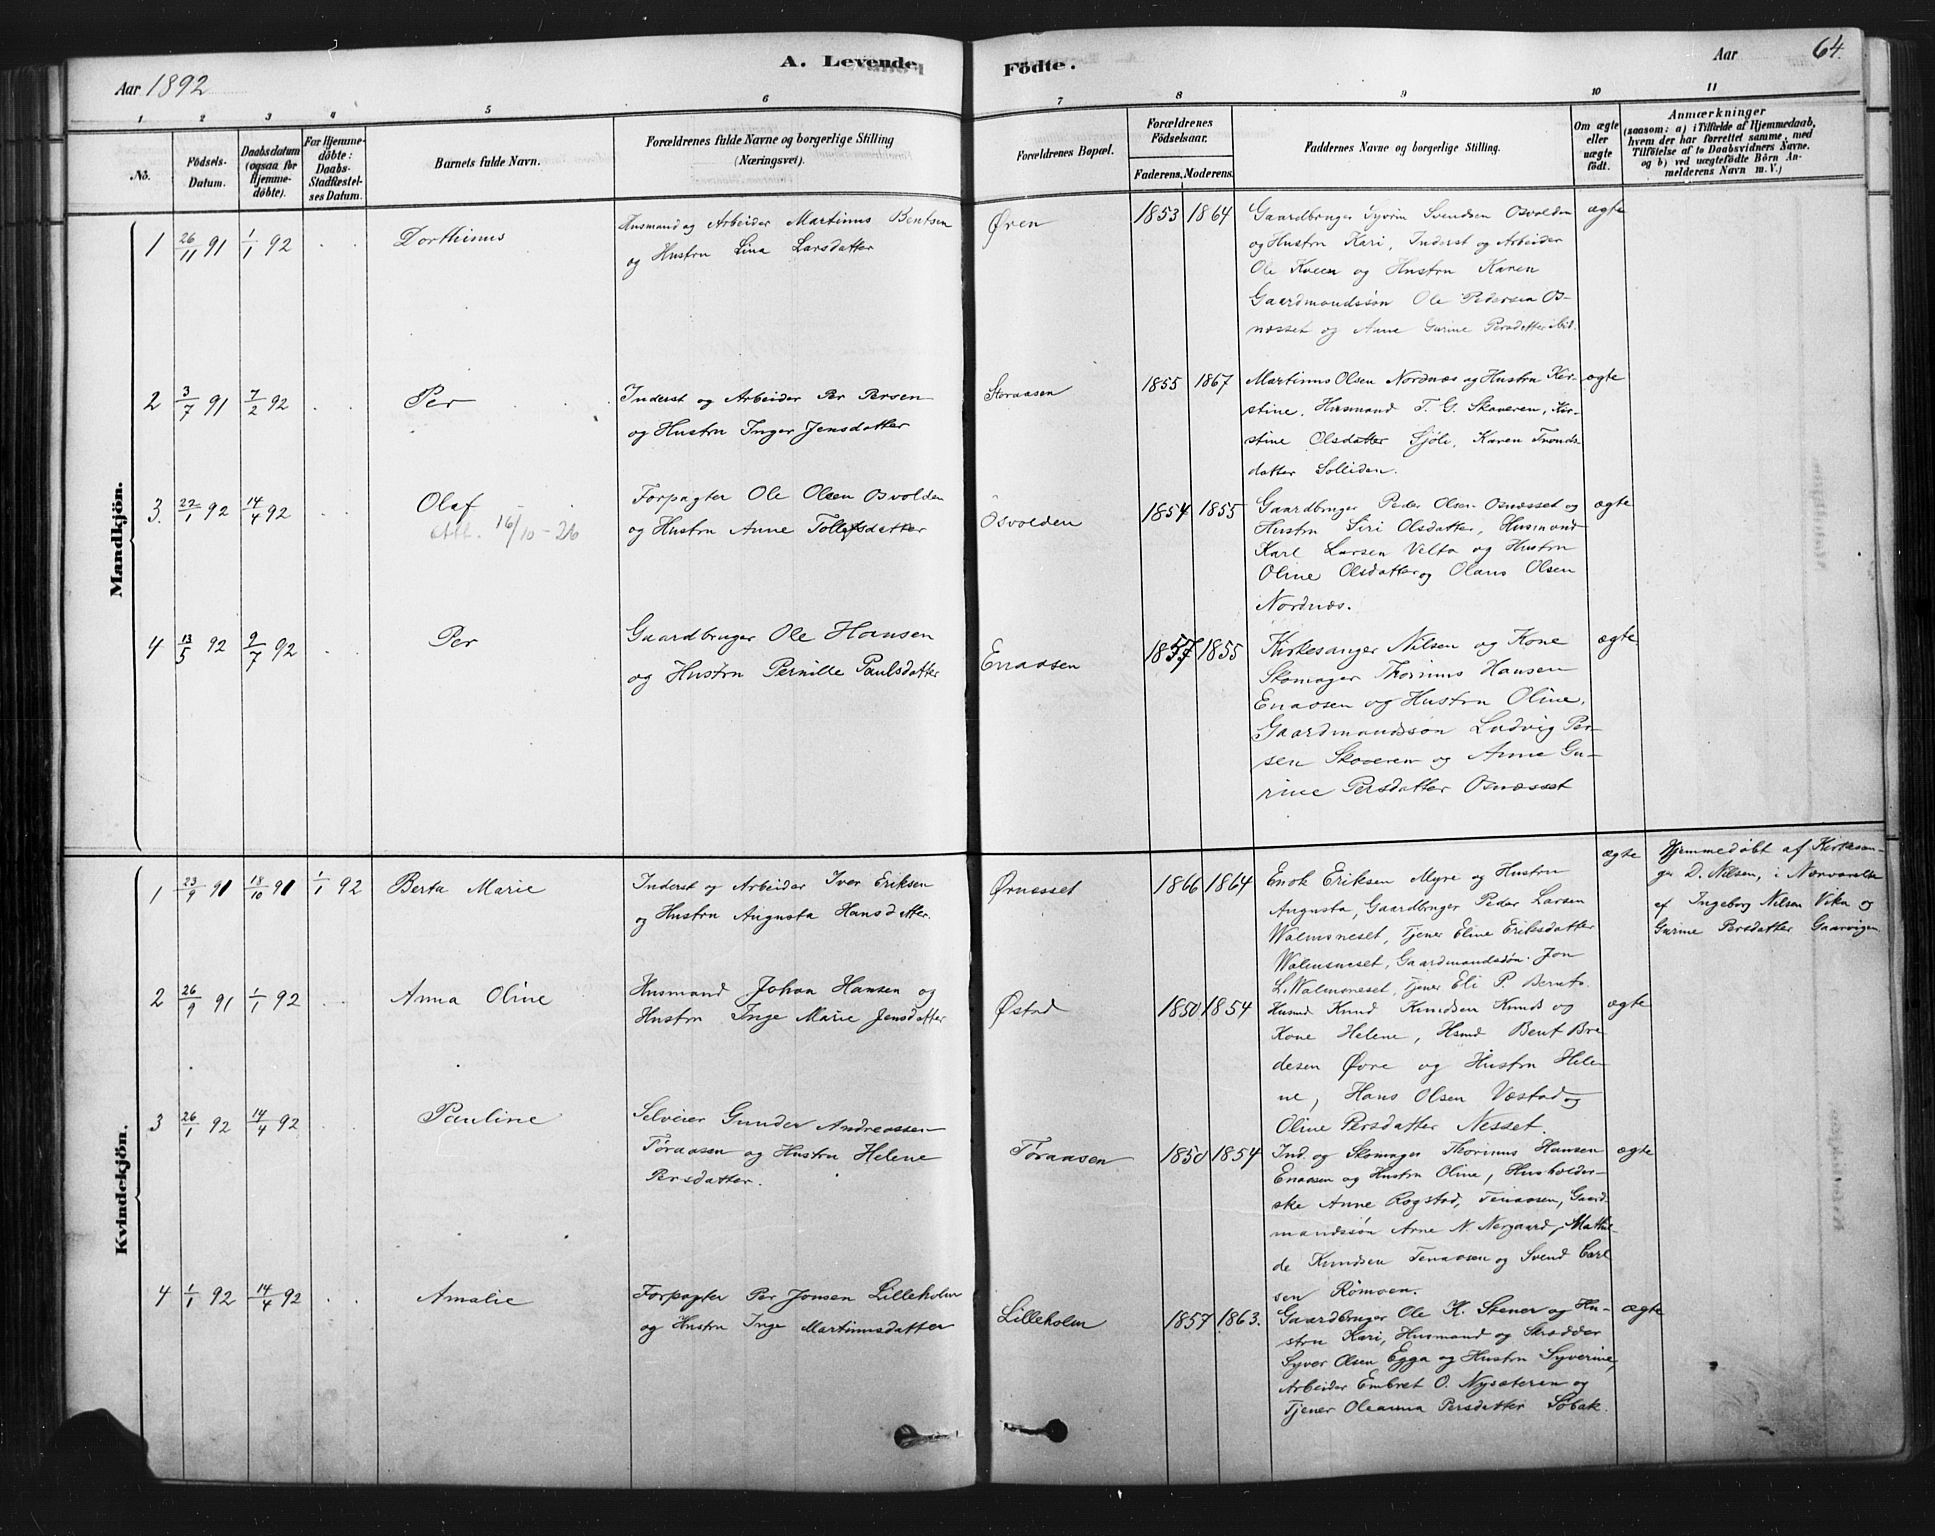 Aar 1892
A. Levende
Fødte.
Aar
64.
1 2 3 4 5 6 7 8 9 10 11
No.
Fødsels-
Datum.
Daabsdatum
(ogsaa for
Hjemme-
døbte).
For Hjemme-
døbte:
Daabs-
Stadfæstel-
ses Datum.
Barnets fulde Navn.
Forældrenes fulde Navne og borgerlige Stilling
(Næringsvei).
Forældrenes Bopæl.
Forældrenes
Fødselsaar.
Faderens. Moderens.
Faddernes Navne og borgerlige Stilling.
Om ægte
eller
uægte
født.
Anmærkninger
(saasom: a) i Tilfælde af Hjemmedaab,
hvem der har forrettet samme, med
Tilføielse af to Daabsvidners Navne.
og b) ved uægtefødte Børn An-
melderens Navn m. V.)
Mandkjön.
1 26/11 91 1/1 92 Dorthinus
Husmand og Arbeider Martinus Bentsen
og Hustru Lina Larsdatter
Øren
1853 1864
Gaardbruger Syvrin Svendsen Osvolden
og Hustru Kari, Inderst og Arbeider
Ole Kveen og Hustru Karen
Gaardmandssøn Ole Pedersen Os-
næsset og Anne Gurine Persdatter ibid.
ægte
2 3/7 91 7/2 92 Per
Inderst og Arbeider Per Persen
og Hustru Inger Jensdatter
Storaasen
1855 1867
Martinus Olsen Nordnæs og Hustru Ker-
stine, Husmand T. G. Skoveren, Kir-
stine Olsdatter Sjöli, Karen Tronds-
datter Solliden.
ægte
3. 22/1 92 14/4 92 Olaf
Att. 16/10-26
Forpagter Ole Olsen Osvolden
og Hustru Anne Tollefsdatter
Osvolden
1854 1855
Gaardbruger Peder Olsen Osnæsset og
Hustru Siri Olsdatter, Husmand
Karl Larsen Velta og Hustru
Oline Olsdatter og Olaus Olsen
Nordnæs.
ægte
4 13/5 92 9/7 92 Per
Gaardbruger Ole Hansen
og Hustru Pernille Paulsdatter
Enaasen
1857 1855
Kirkesanger Nilsen og Kone
Skomager Thorinus Hansen
Enaasen og Hustru Oline,
Gaardmandssøn Ludvig Per-
sen Skoveren og Anne Gu-
rine Persdatter Osnæsset
ægte
Kvindekjön.
1 23/9 91 18/10 91 1/1 92 Berta Marie
Inderst og Arbeider Iver Eriksen
og Hustru Augusta Hansdatter.
Ørnæsset
1866 1864
Enok Eriksen Myre og Hustru
Augusta, Gaardbruger Peder Larsen
Walmsneset, Tjener Eline Eriksdatter
Walmsneset, Gaardmandssøn Jon
L. Walmsneset, Tjener Eli P. Berntsⁿ.
ægte
Hjemmedøbt af Kirkesan-
ger D. Nilsen, i Nærværelse
af Ingeborg Nilsen Vika og
Gurine Persdatter Gaarvigen
2 26/9 91 1/1 92 Anna Oline
Husmand Johan Hansen og
Hustru Inge Marie Jensdatter
Østad
1850 1854
Husmd Knud Knudsen Knuds og
Kone Helene, Hsmd Bent Bre
desen Øvre og Hustru Hele-
ne, Hans Olsen Væstad og
Oline Persdatter Nesset.
ægte
3 26/1 92 14/4 92 Pauline
Selveier Gunder Andreassen
Töraasen og Hustru Helene
Persdatter.
Töraasen
1850 1854
Ind. og Skomager Thorinus Hansen
Enaasen og Hustru Oline, Husholder-
ske Anne Rogstad, Tenaasen, Gaard-
mandssøn Arne N. Nergaard, Mathil-
de Knudsen Tenaasen og Svend Carl
sen Römoen.
ægte
4 1/1 92 14/4 92 Amalie
Forpagter Per Jonsen Lilleholm
og Hustru Inge Martinusdatter
Lilleholm
1857 1863.
Gaardbruger Ole K. Stener og Hu-
stru Kari, Husmand og Skrædder
Syver Olsen Egga og Hustru Syverine,
Arbeider Embret O. Nysæteren og
Tjener Oleanna Persdatter Søbak.
ægte